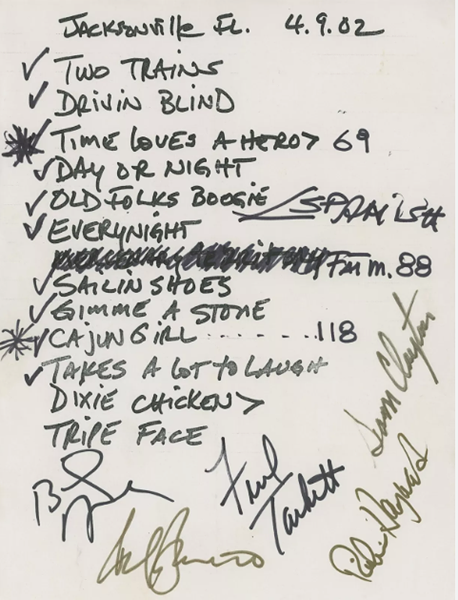 JACKSONVILLE FL. 4.9.02
✓ TWO TRAINS
✓ DRIVIN BLIND
✓ TIME LOVES A HERO> 69
✓ DAY OR NIGHT
✓ OLD FOLKS BOOGIE
✓ EVERYNIGHT
Fm m. 88
✓ SAILIN SHOES
✓ GIMME A STONE
✓ CAJUN GIRL ........118
✓ TAKES A LOT TO LAUGH
DIXIE CHICKEN>
TRIPE FACE
Sam Clayton
Fred Tackett
Richie Hayward